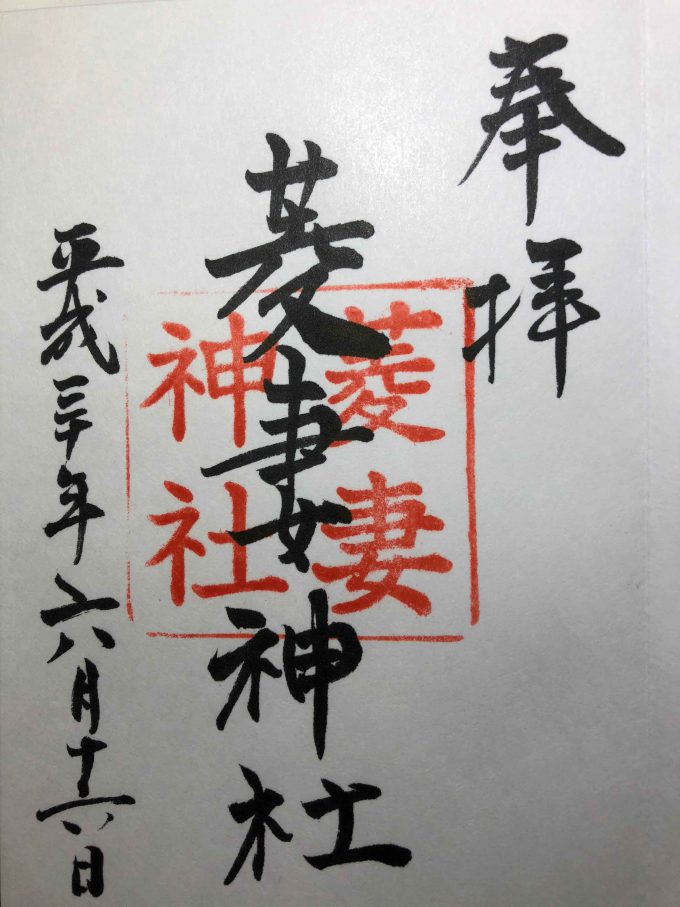 奉拝
菱妻神社
菱妻
神社
平成三十年六月十六日